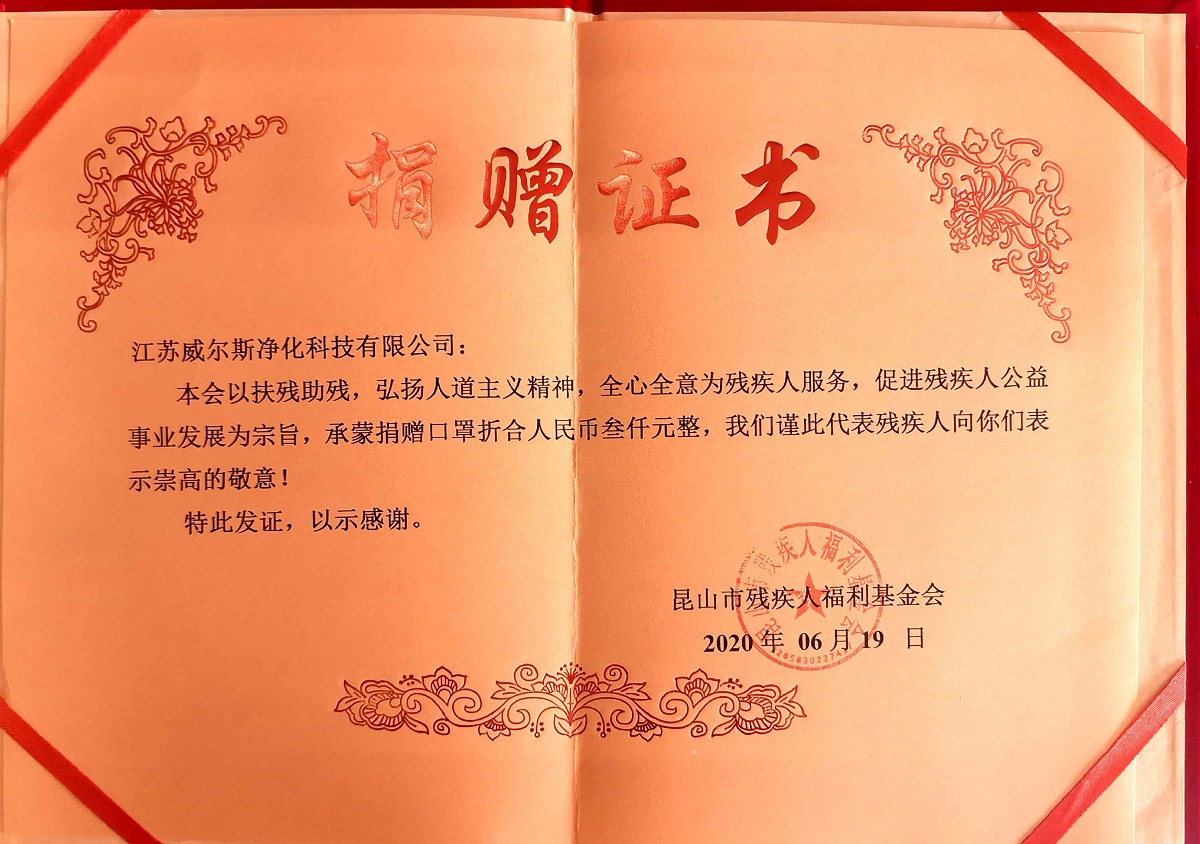 捐赠证书
江苏威尔斯净化科技有限公司：
本会以扶残助残，弘扬人道主义精神，全心全意为残疾人服务，促进残疾人公益
事业发展为宗旨，承蒙捐赠口罩折合人民币叁仟元整，我们谨此代表残疾人向你们表
示崇高的敬意！
特此发证，以示感谢。
昆山市残疾人福利基金会
昆山市残疾人福利基金会
2020 年 06 月 19 日